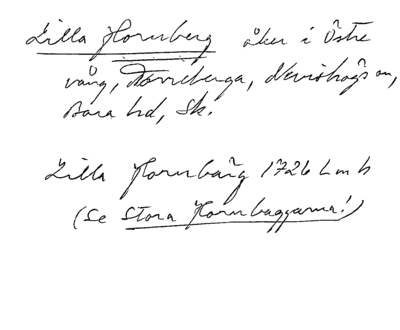 Lilla Hornberg åker i Östre
vång, Törreberga, Nevishögs sn,
Bara hd, Sk.
Lilla Hornbärg 1726 Lmh
(Se Stora Hornbaggarna!)